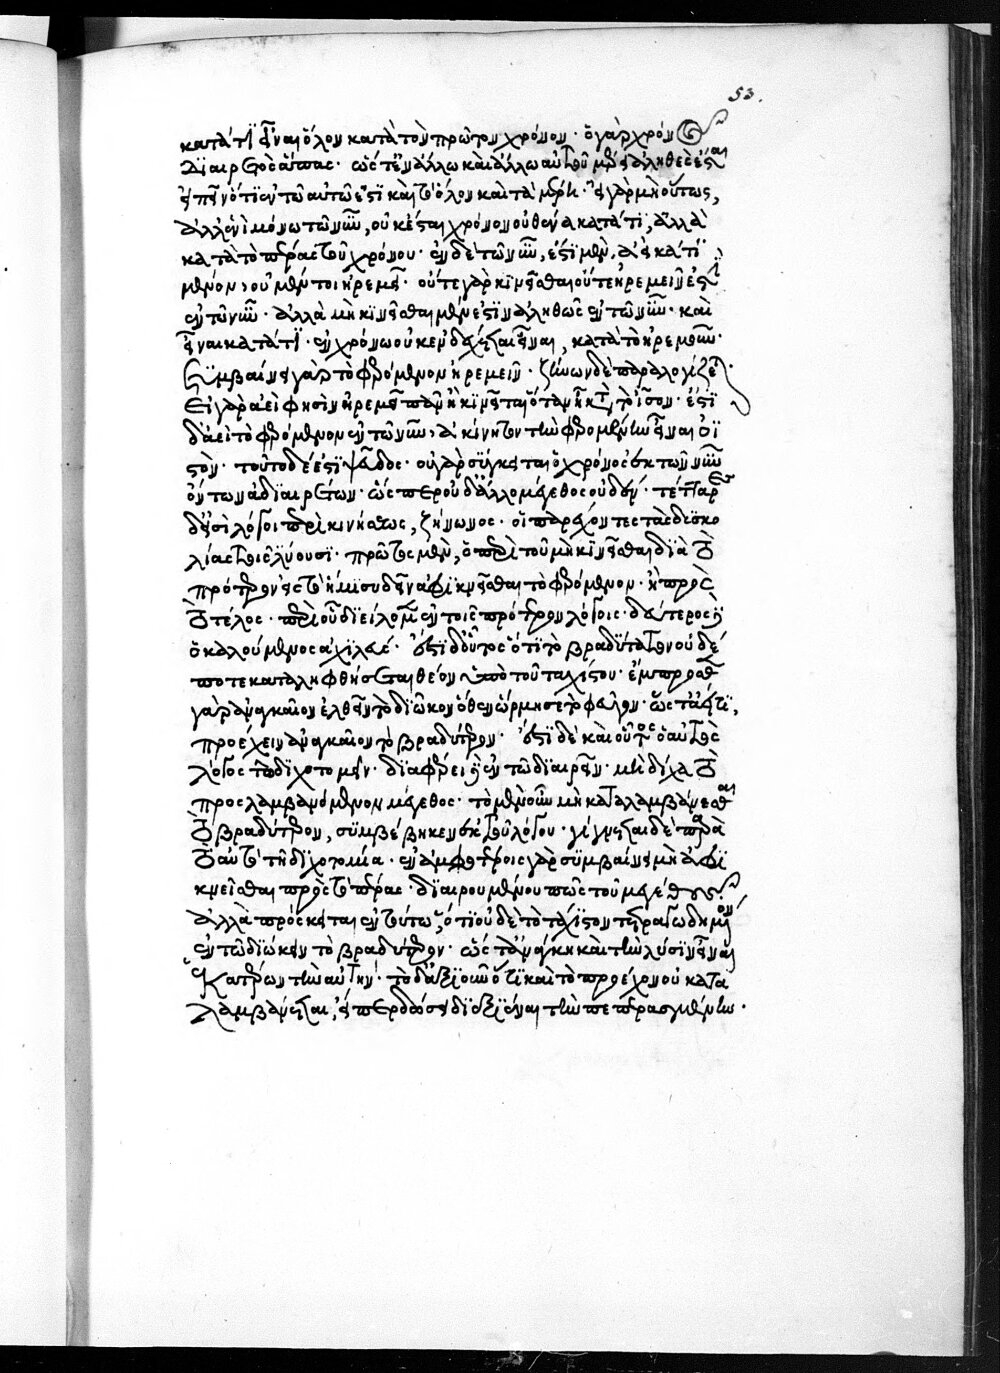 53.
κατά τι εἶναι ὅλον κατὰ τὸν πρῶτον χρόνον· ὁ γὰρ χρόνος
διαιρετὸς ἅπας· ὥστ' ἐν ἄλλω καὶ ἄλλω αὐτοῦ μέρει ἀληθὲς ἔσται
εἰπεῖν ὅτι ἐν τῶ αὐτῶ ἐστι καὶ τὸ ὅλον καὶ τὰ μέρη· εἰ γὰρ μὴ οὕτως,
ἀλλ' ἐνὶ μόνω τῶ νῦν, οὐκ ἔσται χρόνον οὐθένα κατά τι, ἀλλὰ
κατὰ τὸ πέρας τοῦ χρόνου· ἐν δὲ τῶ νῦν, ἔστι μὲν ἀεὶ κατά τι
μένον, οὐ μέντοι ἠρεμεῖ· οὔτε γὰρ κινεῖσθαι οὔτ' ἠρεμεῖν ἔστιν
ἐν τῶ νῦν· ἀλλὰ μὴ κινεῖσθαι μέν ἐστιν ἀληθῶς ἐν τῶ νῦν· καὶ
εἶναι κατά τι· ἐν χρόνω οὐκ ἐνδέχεται εἶναι, κατὰ τὸ ἠρεμοῦν·
συμβαίνει γὰρ τὸ φερόμενον ἠρεμεῖν· ζήνων δὲ παραλογίζεται·
εἰ γὰρ ἀεὶ φησὶν ἠρεμεῖ πᾶν ἢ κινεῖται ὅταν ᾖ κατὰ τὸ ἴσον· ἔστι
δ' ἀεὶ τὸ φερόμενον ἐν τῶ νῦν, ἀκίνητον τὴν φερομένην εἶναι οἴ
στόν· τοῦτο δέ ἐστι ψεῦδος· οὐ γὰρ σύγκειται ὁ χρόνος ἐκ τῶν νῦν
ὄντων ἀδιαιρέτων· ὥσπερ οὐδ' ἄλλο μέγεθος οὐδέν· τέτταρες
δ' εἰσὶ λόγοι περὶ κινήσεως, ζήνωνος· οἱ παρέχοντες τὰς δυσκο
λίας τοῖς λύουσι· πρῶτος μὲν, ὁ περὶ τοῦ μὴ κινεῖσθαι διὰ τὸ
πρότερον εἰς τὸ ἥμισυ δεῖν ἀφικνεῖσθαι τὸ φερόμενον· ἢ πρὸς
τὸ τέλος· περὶ οὗ διείλομεν ἐν τοῖς πρότερον λόγοις· δεύτερος δ'
ὁ καλούμενος ἀχιλεύς· ἔστι δ' οὗτος ὅτι τὸ βραδύτατον οὐδέ
ποτε καταληφθήσεται θέον ὑπὸ τοῦ ταχίστου· ἔμπροσθεν
γὰρ ἀναγκαῖον ἐλθεῖν τὸ διῶκον ὅθεν ὥρμησε τὸ φεῦγον· ὥστ' ἀεί τι,
προέχειν ἀναγκαῖον τὸ βραδύτερον· ἔστι δὲ καὶ οὗτος ὁ αὐτὸς
λόγος τῶ διχοτομεῖν· διαφέρει δ' ἐν τῶ διαιρεῖν· μὴ δίχα τὸ
προσλαμβανόμενον μέγεθος· τὸ μὲν οὖν μὴ καταλαμβάνεσθαι
τὸ βραδύτερον, συμβέβηκεν ἐκ τοῦ λόγου· γίγνεται δὲ παρὰ
τὸ αὐτὸ τῆ διχοτομία· ἐν ἀμφοτέροις γὰρ συμβαίνει μὴ ἀφι
κνεῖσθαι πρὸς τὸ πέρας· διαιρουμένου πως τοῦ μεγέθους·
ἀλλὰ πρόσκειται ἐν τούτω, ὅτι οὐδὲ τὸ τάχιστον τετραγωδημένον
ἐν τῶ διώκειν τὸ βραδύτερον· ὥστ' ἀνάγκη καὶ τὴν λύσιν εἶναι
ἑκατέρων τὴν αὐτήν· τὸ δ' ἀξιοῦν ὅτι καὶ τὸ προέχον οὐ κατα
λαμβάνεται, εἴπερ δώσει διεξιέναι τὴν πεπερασμένην·